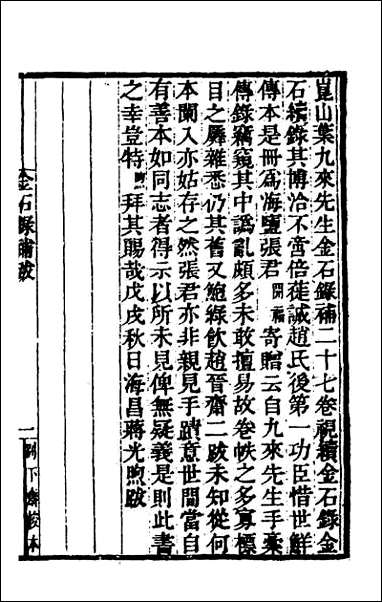 崑山葉九來先生金石錄補二十七卷視續金石錄金
石續錄其博洽不啻倍蓰誠趙氏後第一功臣惜世鮮
傳本是冊爲海鹽張君開福寄贈云自九來先生手藁
傳錄竊窺其中譌亂頗多未敢擅易故卷帙之多寡標
目之龎雜悉仍其舊又鮑淥飲趙晉齋二跋未知從何
本闌入亦姑存之然張君亦非親見手蹟意世間當自
有善本如同志者得示以所未見俾無疑義是則此書
之幸豈特煦拜其賜哉戊戌秋日海昌蔣光煦跋
金石錄補跋
一
別下齋校本